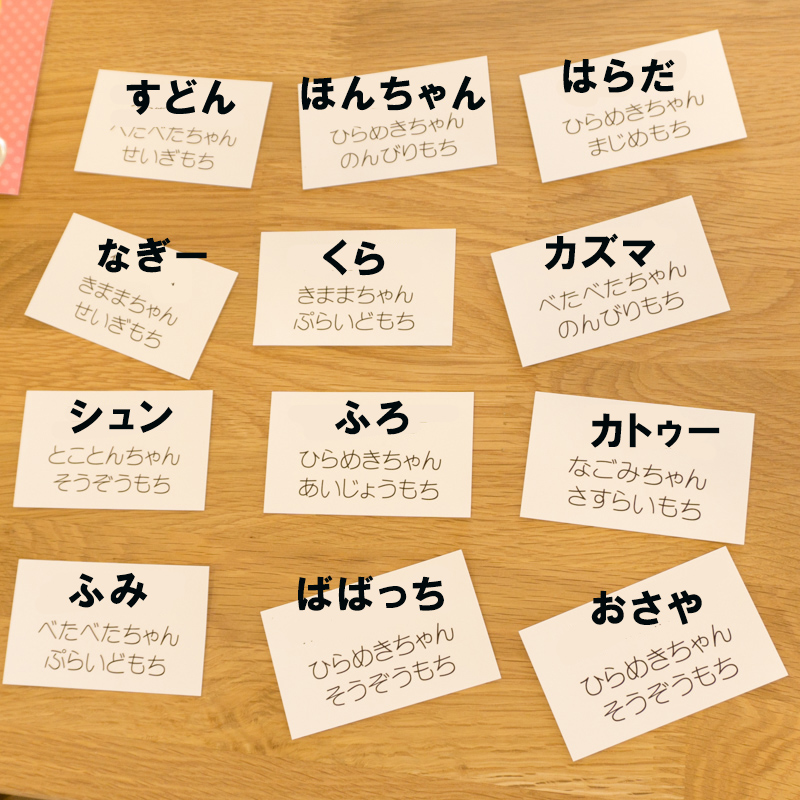 すどん
べたべたちゃん
せいぎもち
ほんちゃん
ひらめきちゃん
のんびりもち
はらだ
ひらめきちゃん
まじめもち
なぎー
きままちゃん
せいぎもち
くら
きままちゃん
ぷらいどもち
カズマ
べたべたちゃん
のんびりもち
シュン
とことんちゃん
そうぞうもち
ふろ
ひらめきちゃん
あいじょうもち
カトゥー
なごみちゃん
さすらいもち
ふみ
べたべたちゃん
ぷらいどもち
ばばっち
ひらめきちゃん
そうぞうもち
おさや
ひらめきちゃん
そうぞうもち